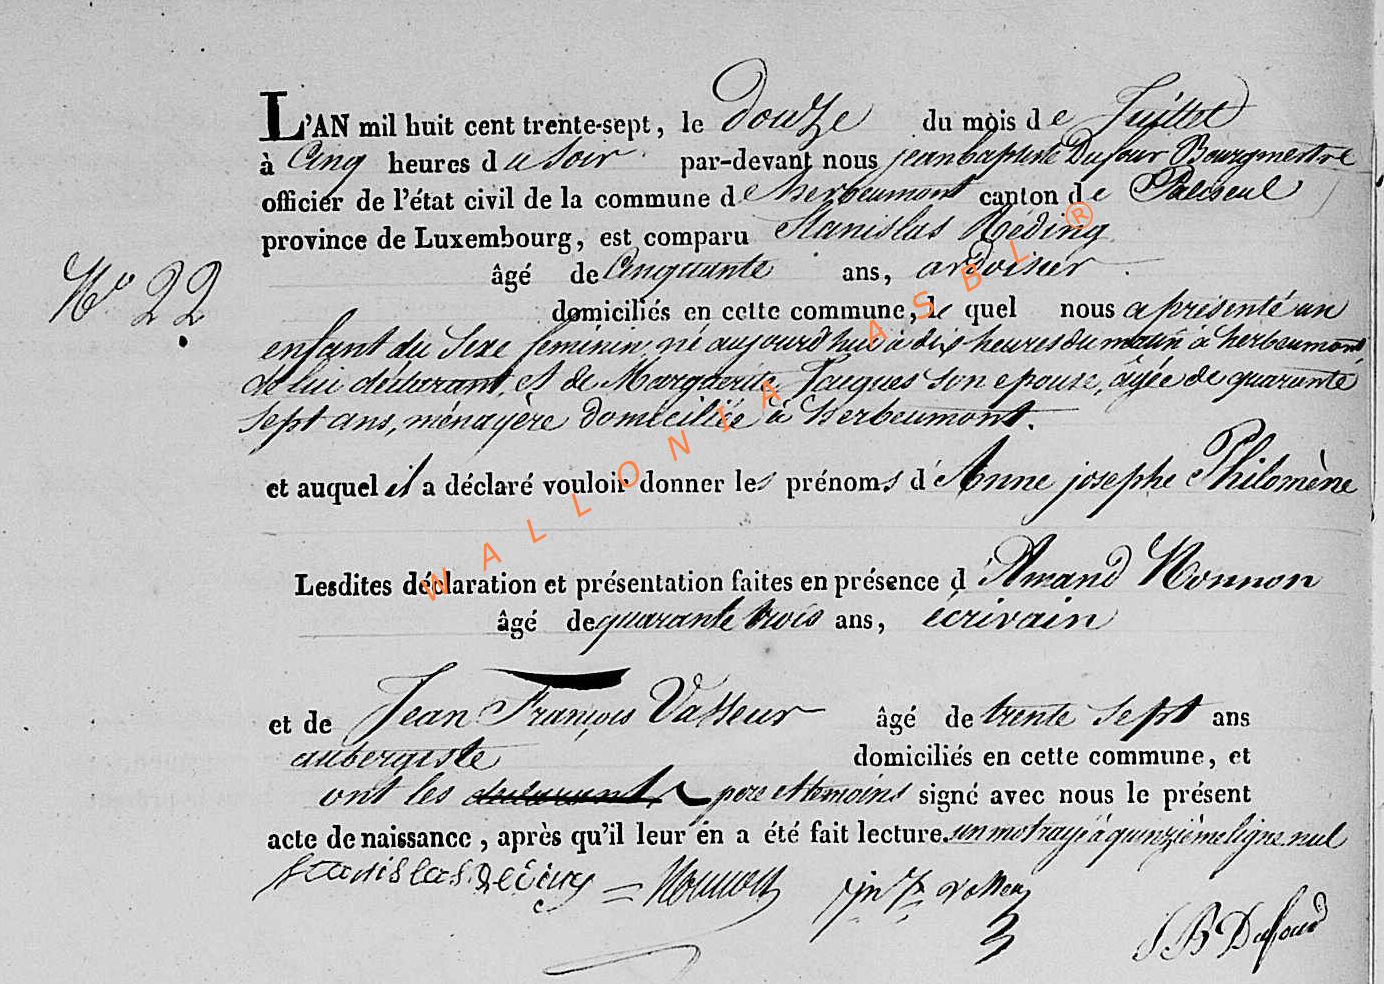 L'AN mil huit cent trente-sept, le Douze du mois de Juillet
à Cinq heures du Soir par-devant nous jean baptiste Dufour Bourgmestre
officier de l'état civil de la commune de herbeumont canton de Paliseul
province de Luxembourg, est comparu Stanislas Réding
âgé de Cinquante ans, ardoisier
N° 22
domiciliés en cette commune, le quel nous a présenté un
enfant du Sexe féminin, né aujourd'hui à dix heures du matin à herbeumont
de lui déclarant, et de Marguerite Jaques son epouse, âgée de quarante
Sept ans, ménagère domiciliée à herbeumont.
et auquel il a déclaré vouloir donner les prénoms d'Anne josephe Philomène
Lesdites déclaration et présentation faites en présence d'Amand Nonnon
âgé de quarante trois ans, écrivain
et de Jean François Vasseur âgé de trente Sept ans
aubergiste domiciliés en cette commune, et
ont les declarant pere et temoins signé avec nous le présent
acte de naissance, après qu'il leur en a été fait lecture. un mot rayé à quinzième ligne nul
Stanislas Réding Nonnon J B Dufour
WALLONIA ASBL ®